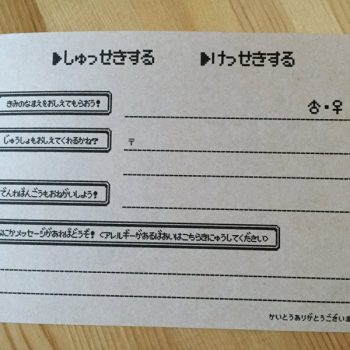 ▶しゅっせきする ▶けっせきする
きみのなまえをおしえてもらおう！
♂・♀
じゅうしょもおしえてくれるかね？
〒
でんわばんごうもおねがいしよう！
なにかメッセージがあればどうぞ！〈アレルギーがあるばあいはこちらきにゅうしてください〉
かいとうありがとうございま